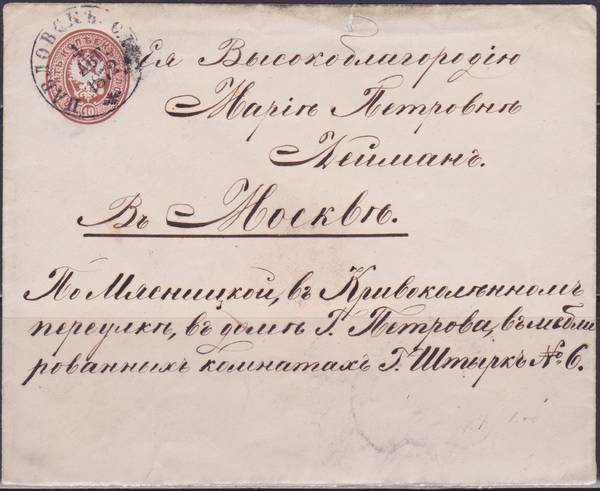 ПАВЛОВСКЪ
10
Ея Высокоблагородію
Маріѣ Петровнѣ
Нейманъ.
Въ Москвѣ.
По Мясницкой, въ Кривоколѣнномъ
переулкѣ, въ домѣ Г. Петрова, въ мебли
рованныхъ комнатахъ Г. Штыркъ № 6.